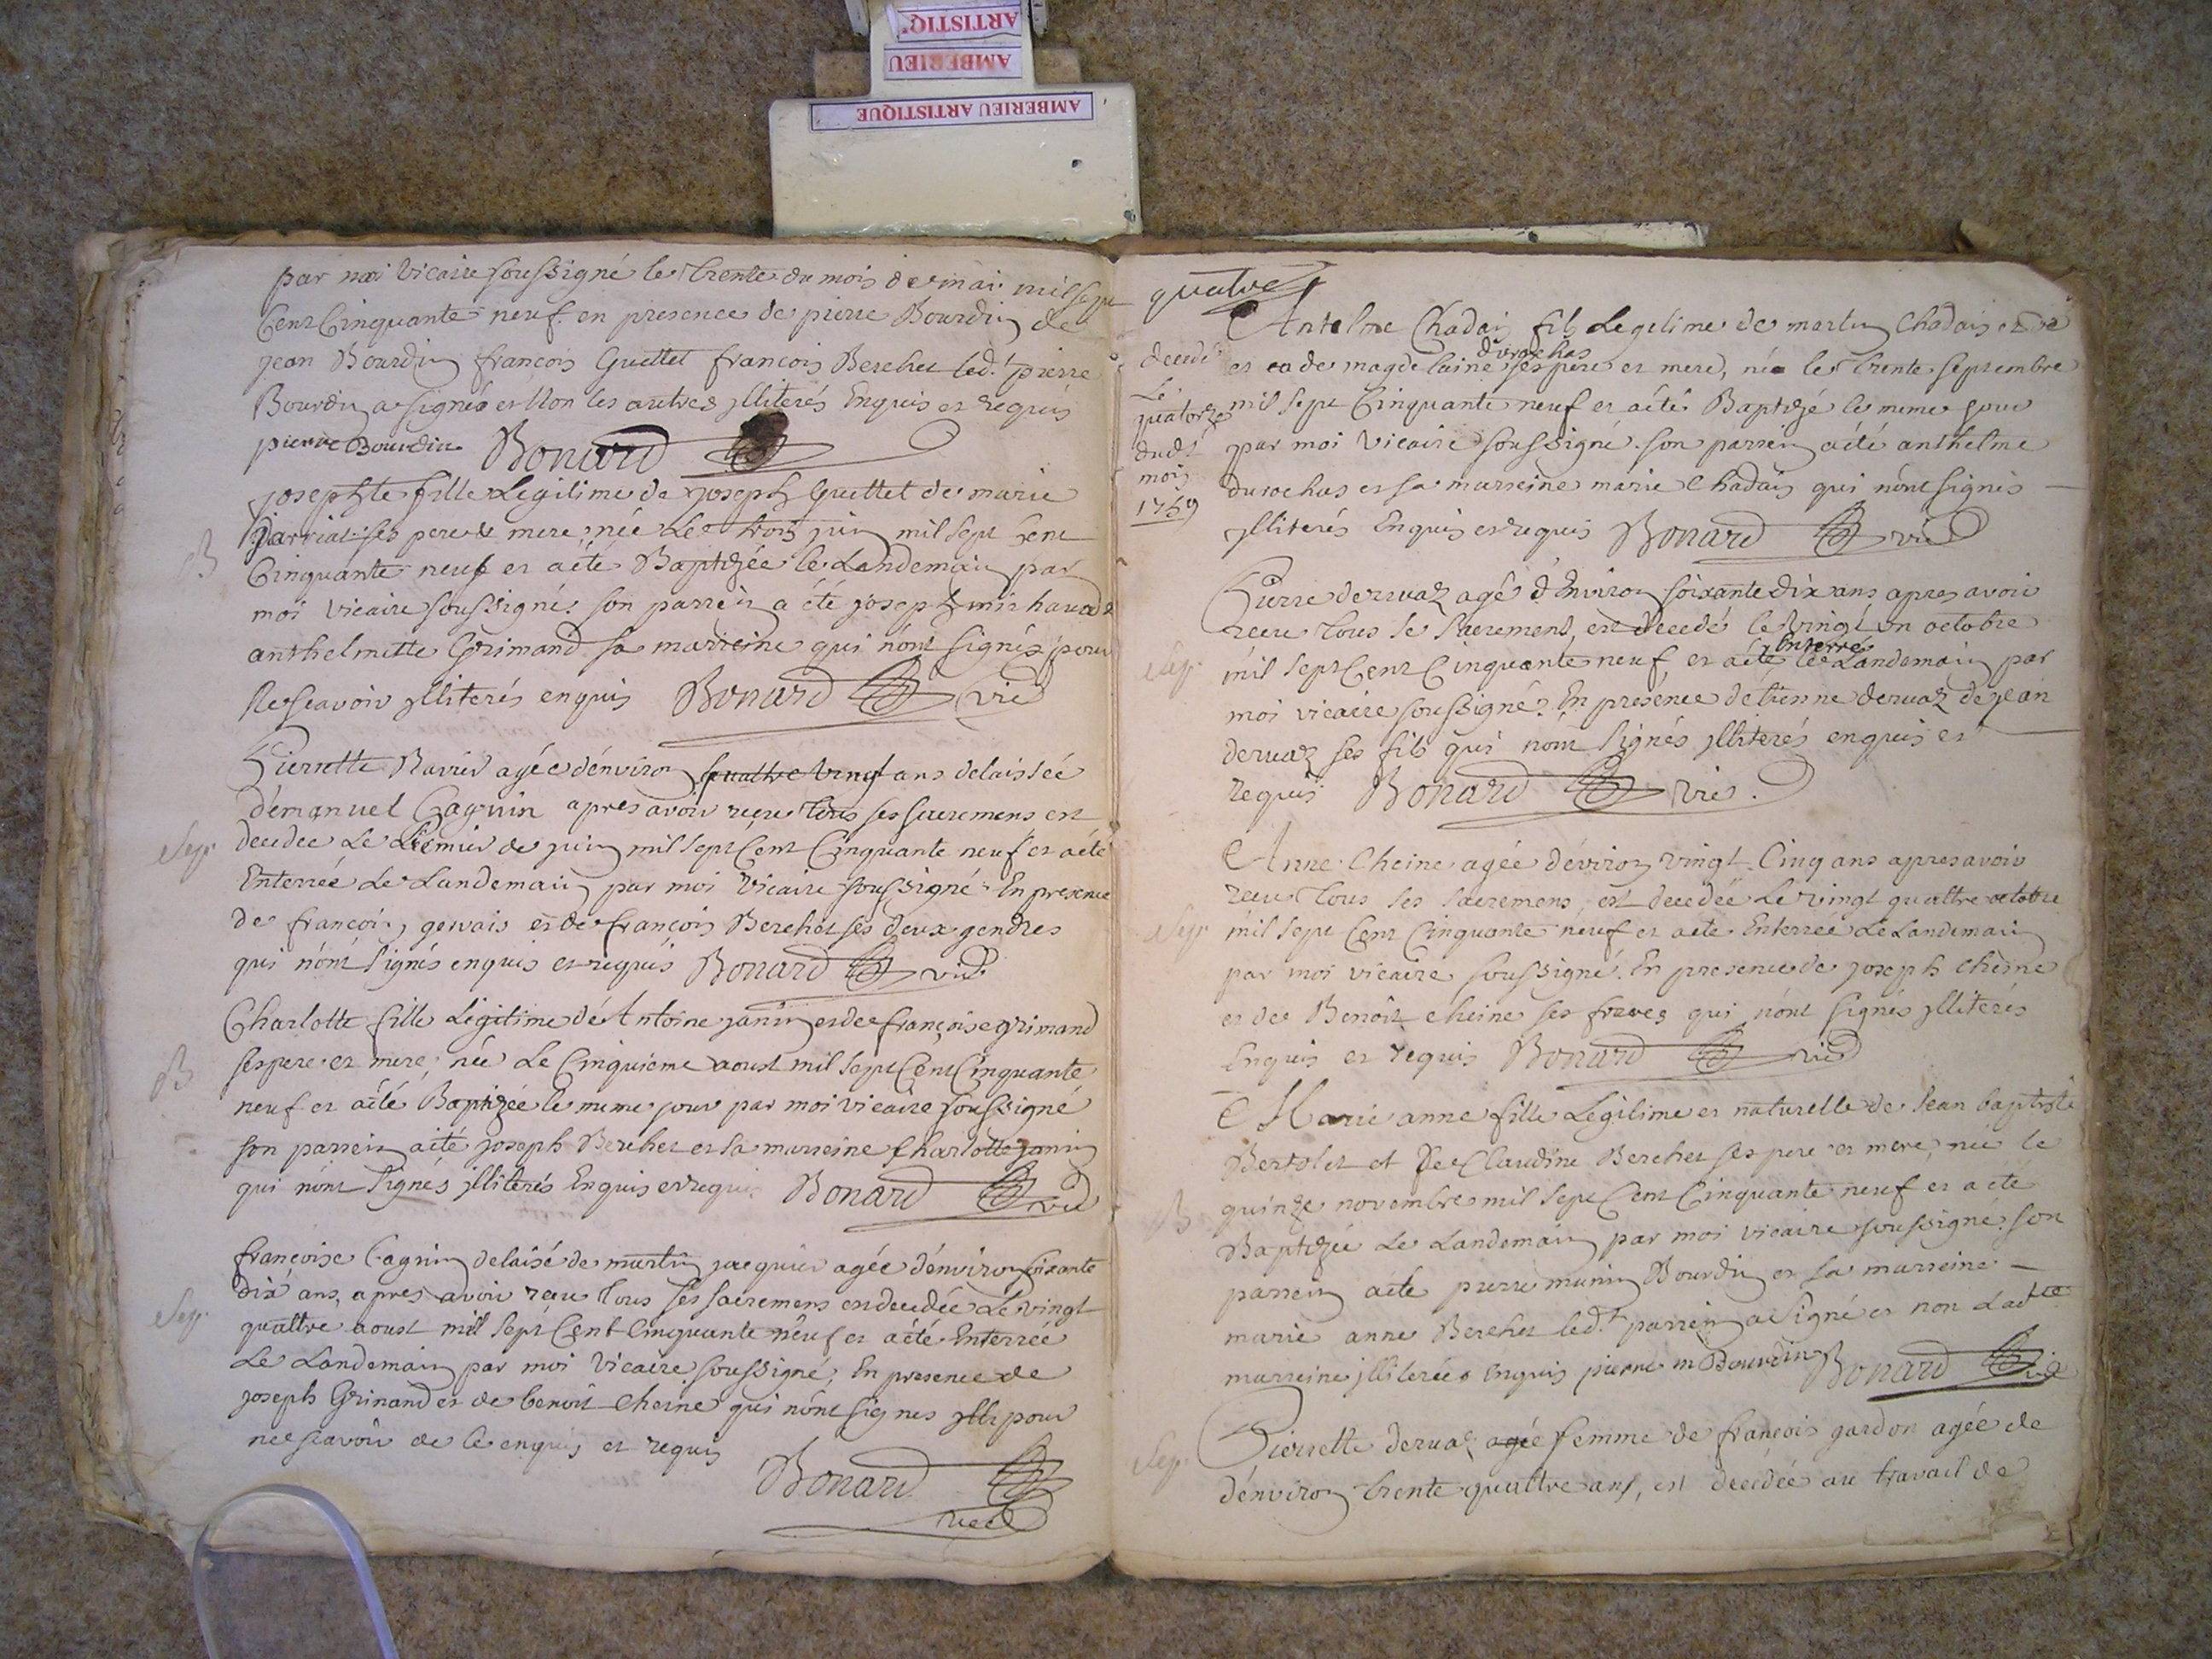 ARTISTIQ'
AMBERIEU
AMBERIEU ARTISTIQUE
par moi vicaire soussigné le trente du mois de mai mil sept
Cent Cinquante neuf en presence de pierre Bourdin de
jean Bourdin francois Guettet francois Berchet led.t pierre
Bourdin a signés et Non les autres jlliterés Enquis et requis
pierre Bourdin Bonard
josephte fille Legitime de joseph Guettet de marie
jarriat ses pere & mere, née Le trois juin mil sept Cent
B
Cinquante neuf et a été Baptizée le Landemain par
moi vicaire soussigné. son parrein a été joseph michaud &
anthelmette Grimand sa marreine qui n'ont signés pour
Ne sçavoir jlliterés enquis Bonard vic
Pierrette Ravier agée d'environ quattre vingt ans delaissée
d'emanuel Cagnin apres avoir reçu tous ses sacremens est
Sep.
decedee Le premier de juin mil sept Cent Cinquante neuf et a été
Enterrée Le Landemain par moi Vicaire soussigné En presence
de françois gervais et de françois Berchet ses deux gendres
qui n'ont signés enquis et requis Bonard vic
Charlotte fille Légitime de Antoine janin et de françoise grimand
ses pere et mere, née Le Cinquieme aoust mil sept Cent Cinquante
B
neuf et a été Baptizée le meme jour par moi vicaire soussigné
son parrein a été joseph Berchet et sa marreine Charlotte janin
qui n'ont signés jlliterés Enquis et requis Bonard vic
françoise Cagnin delaisé de martin jacquier agée d'environ soixante
dix ans, apres avoir reçu tous ses sacremens est decedée Le vingt
Sep.
quattre aoust mil sept Cent Cinquante neuf et a été Enterrée
Le Landemain par moi Vicaire soussigné, En presence de
joseph Grinand et de benoit Cheine qui n'ont signes pour
ne sçavoir de Ce enquis et requis
Bonard
vic
quatre
Antelme Chadais fils Legitime de martin Chadais et de
durochas
et de magdelaine ses pere et mere, né le trente septembre
decedé
Le
quatorze
dud.t
mois
1759
mil sept Cinquante neuf et a été Baptizé le meme jour
par moi vicaire soussigné. son parrein a été anthelme
durochas et sa marreine marie Chadais qui n'ont signés
jlliterés Enquis et requis Bonard vic
Pierre deruaz agé d'Environ soixante dix ans apres avoir
reçu tous se sacrement, est decedé le vingt un octobre
Enterré
Sep.
mil sept Cent Cinquante neuf et a été le Landemain par
moi vicaire soussigné. En presence detienne deruaz de jean
deruaz ses fils qui n'ont signés jlliterés enquis et
requis Bonard vic.
Anne Cheine agée d'eviron vingt Cinq ans apres avoir
reçu tous ses sacremens, est decedée Le vingt quattre octobre
Sep.
mil sept Cent Cinquante neuf et a ete Enterrée Le Landemain
par moi vicaire soussigné. En presence de joseph Cheine
et de Benoit cheine ses freres qui n'ont signés jlliterés
Enquis et requis Bonard vic
Marie anne fille Legitime et naturelle de Jean baptiste
Bertolet et De Claudine Berchet ses pere et mere, née le
quinze novembre mil sept Cent Cinquante neuf et a été
B
Baptizée Le Landemain par moi vicaire soussigné. son
parrein a été pierre munin Bourdin et sa marreine
marie anne Berchet led.t parrein a signé et non Ladtte
marreine jlliterée Enquis pierre m Bourdin Bonard vic
Pierrette deruaz agée femme de françois gardon agée de
Sep.
d'environ trente quattre ans, est decédée au travail de